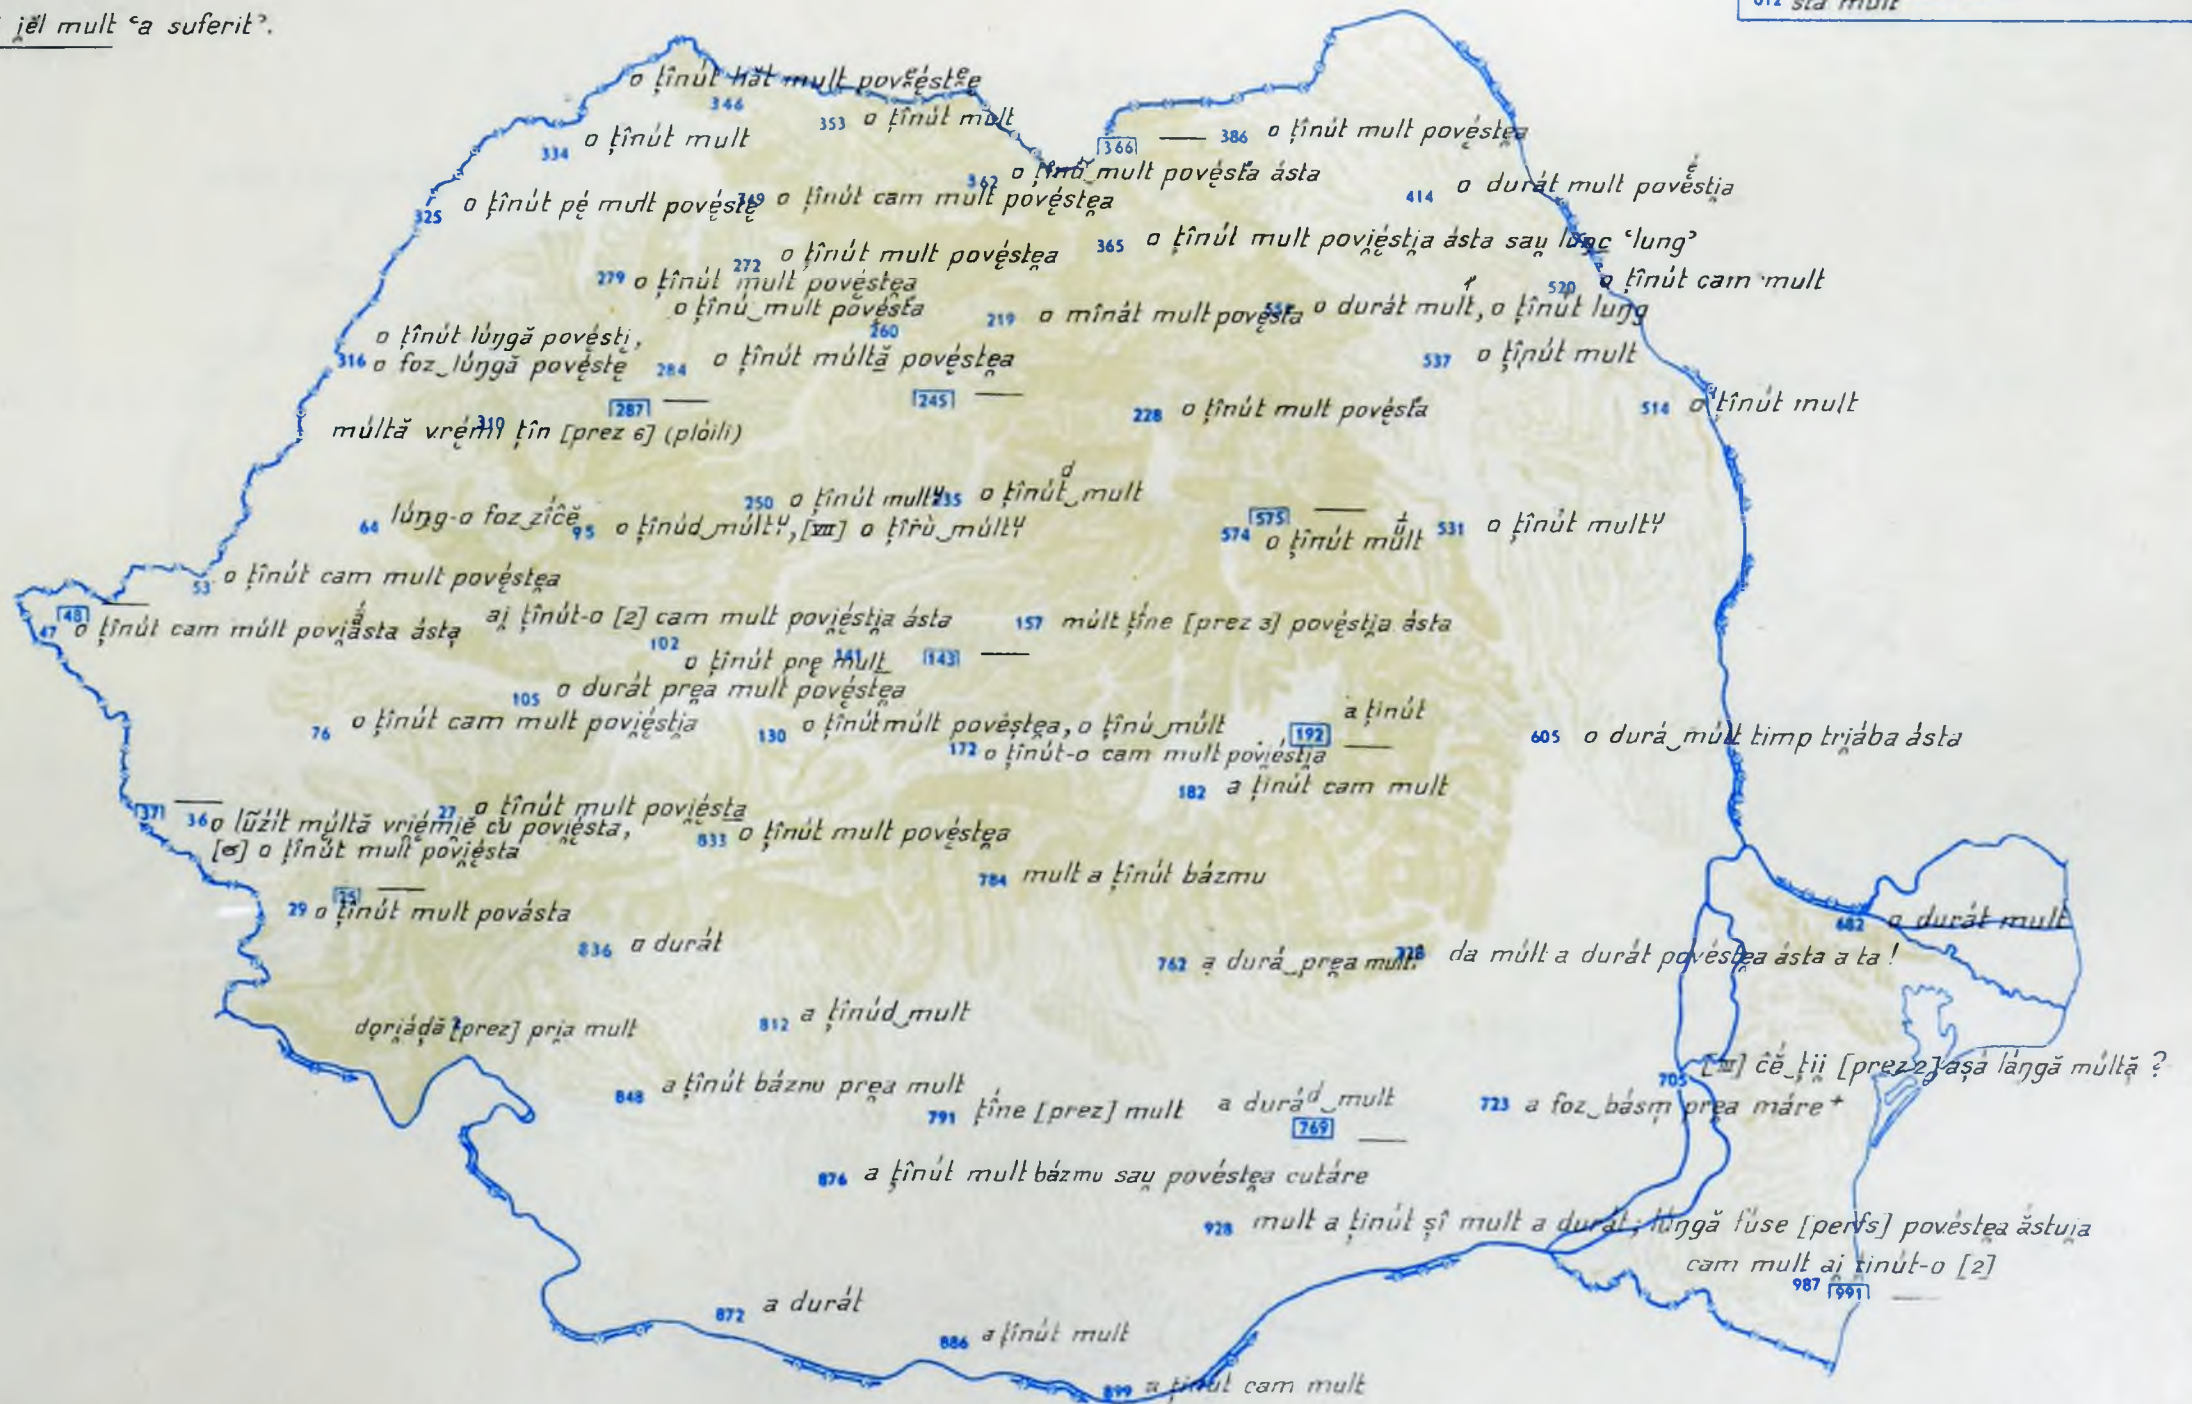 jĕl mult ‘a suferit’.
812 sta mult
o ţînút hăt mult povęę́stęe
346
353 o ţînút mult
334 o ţînút mult
366 —— 386 o ţînút mult povę́stęa
362 o ţînú‿mult povę́sta ásta
414 o durát mult povéstia
325 o ţînút pę́ mult povę́stę
349 o ţînút cam mult povę́stęa
365 o ţînút mult povię́stia ásta sau̯ lunc ‘lung’
272 o ţînút mult povę́stęa
279 o ţînút mult povę́stęa
o ţînú‿múlt povę́sta
260
219 o mînát mult povę́sta
o durát mult, o ţînút luŋg
520 o ţînút cam mult
o ţînút lúŋgă povę́sti,
316 o foz‿lúŋgă povę́stę
284 o ţînút múltă povę́stęa
537 o ţînút mult
287 ——
245 ——
228 o ţînút mult povę́sta
514 o ţînút mult
310
múltă vrémi ţîn [prez 6] (plóili)
250 o ţînút multᵘ
235 o ţînút‿mult
d
64 lúŋg-o foz‿zîĉĕ
95 o ţînúd‿múltᵘ, [VII] o ţîr̃ù‿múltᵘ
575 ——
574 o ţînút múlt
531 o ţînút multᵘ
53 o ţînút cam mult povę́stęa
48 ——
47 o ţînút cam múlt poviásta ástą
ai̯ ţînút-o [2] cam mult povię́stia ásta
102
157 múlt ţíne [prez 3] povę́stia ásta
o ţînút pрę mult
141
143 ——
105 o durát pręa mult povę́stęa
76 o ţînút cam mult povię́stia
130 o ţînút múlt povéştęa, o ţînú‿múlt
a ţinút
192 ——
172 o ţînút-o cam mult povię́stia
605 o durá‿múlt timp triába ásta
182 a ţinút cam mult
37 ——
27 o ţînút mult povię́sta
36 o lũžít múltă vrię́mię cu povię́sta,
[σ] o ţînút mult povię́sta
833 o ţînút mult povę́stęa
784 mult a ţînút bázmu
25 ——
29 o ţînút mult povásta
836 o durát
682 o durát mult
762 a durá‿pręa mult.
728 da múlt a durát povéstęa ásta a ta !
2
doriádă [prez] pria mult
812 a ţînúd‿mult
[III] ĉĕ‿ţii [prez 2] aşá láŋgă múltă ?
705
848 a ţînút báznu pręa mult
791 ţíne [prez] mult
a durád‿mult
769 ——
723 a foz‿básm pręa máre⁺
876 a ţînút mult bázmu sau̯ povéstęa cutáre
928 mult a ţinút şî mult a durát; lúŋgă fúse [perfs] povéstęa ăstuia
cam mult ai̯ ţinút-o [2]
987 991 ——
872 a durát
886 a ţînút mult
899 a ţinut cam mult